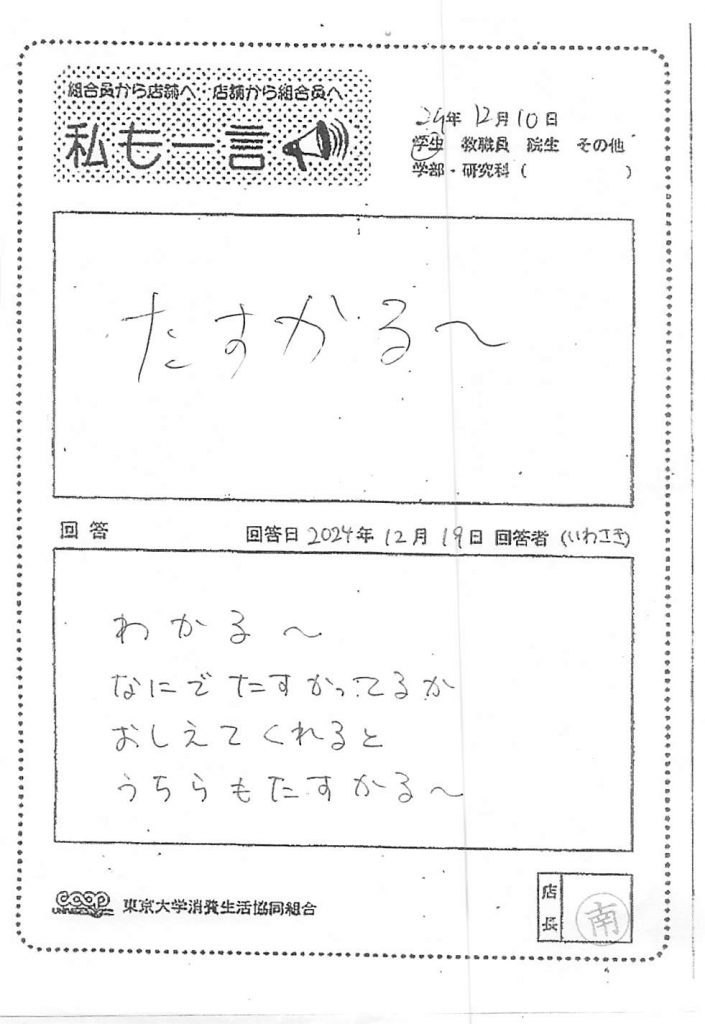 組合員から店舗へ 店舗から組合員へ
私も一言
24年 12月10日
学生 教職員 院生 その他
学部・研究科（ ）
たすかる〜
回答 回答日 2024年 12月 19日 回答者（いわさき）
わかる〜
なにでたすかってるか
おしえてくれると
うちらもたすかる〜
coop
UNIVERSITY
東京大学消費生活協同組合
店長
南